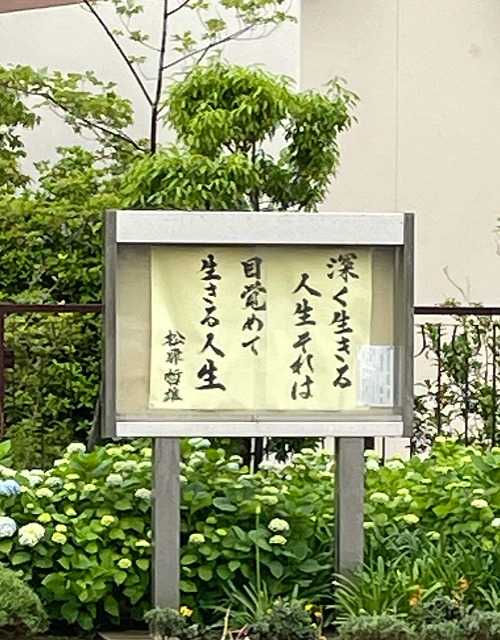 深く生きる
人生それは
目覚めて
生きる人生
松扉哲雄